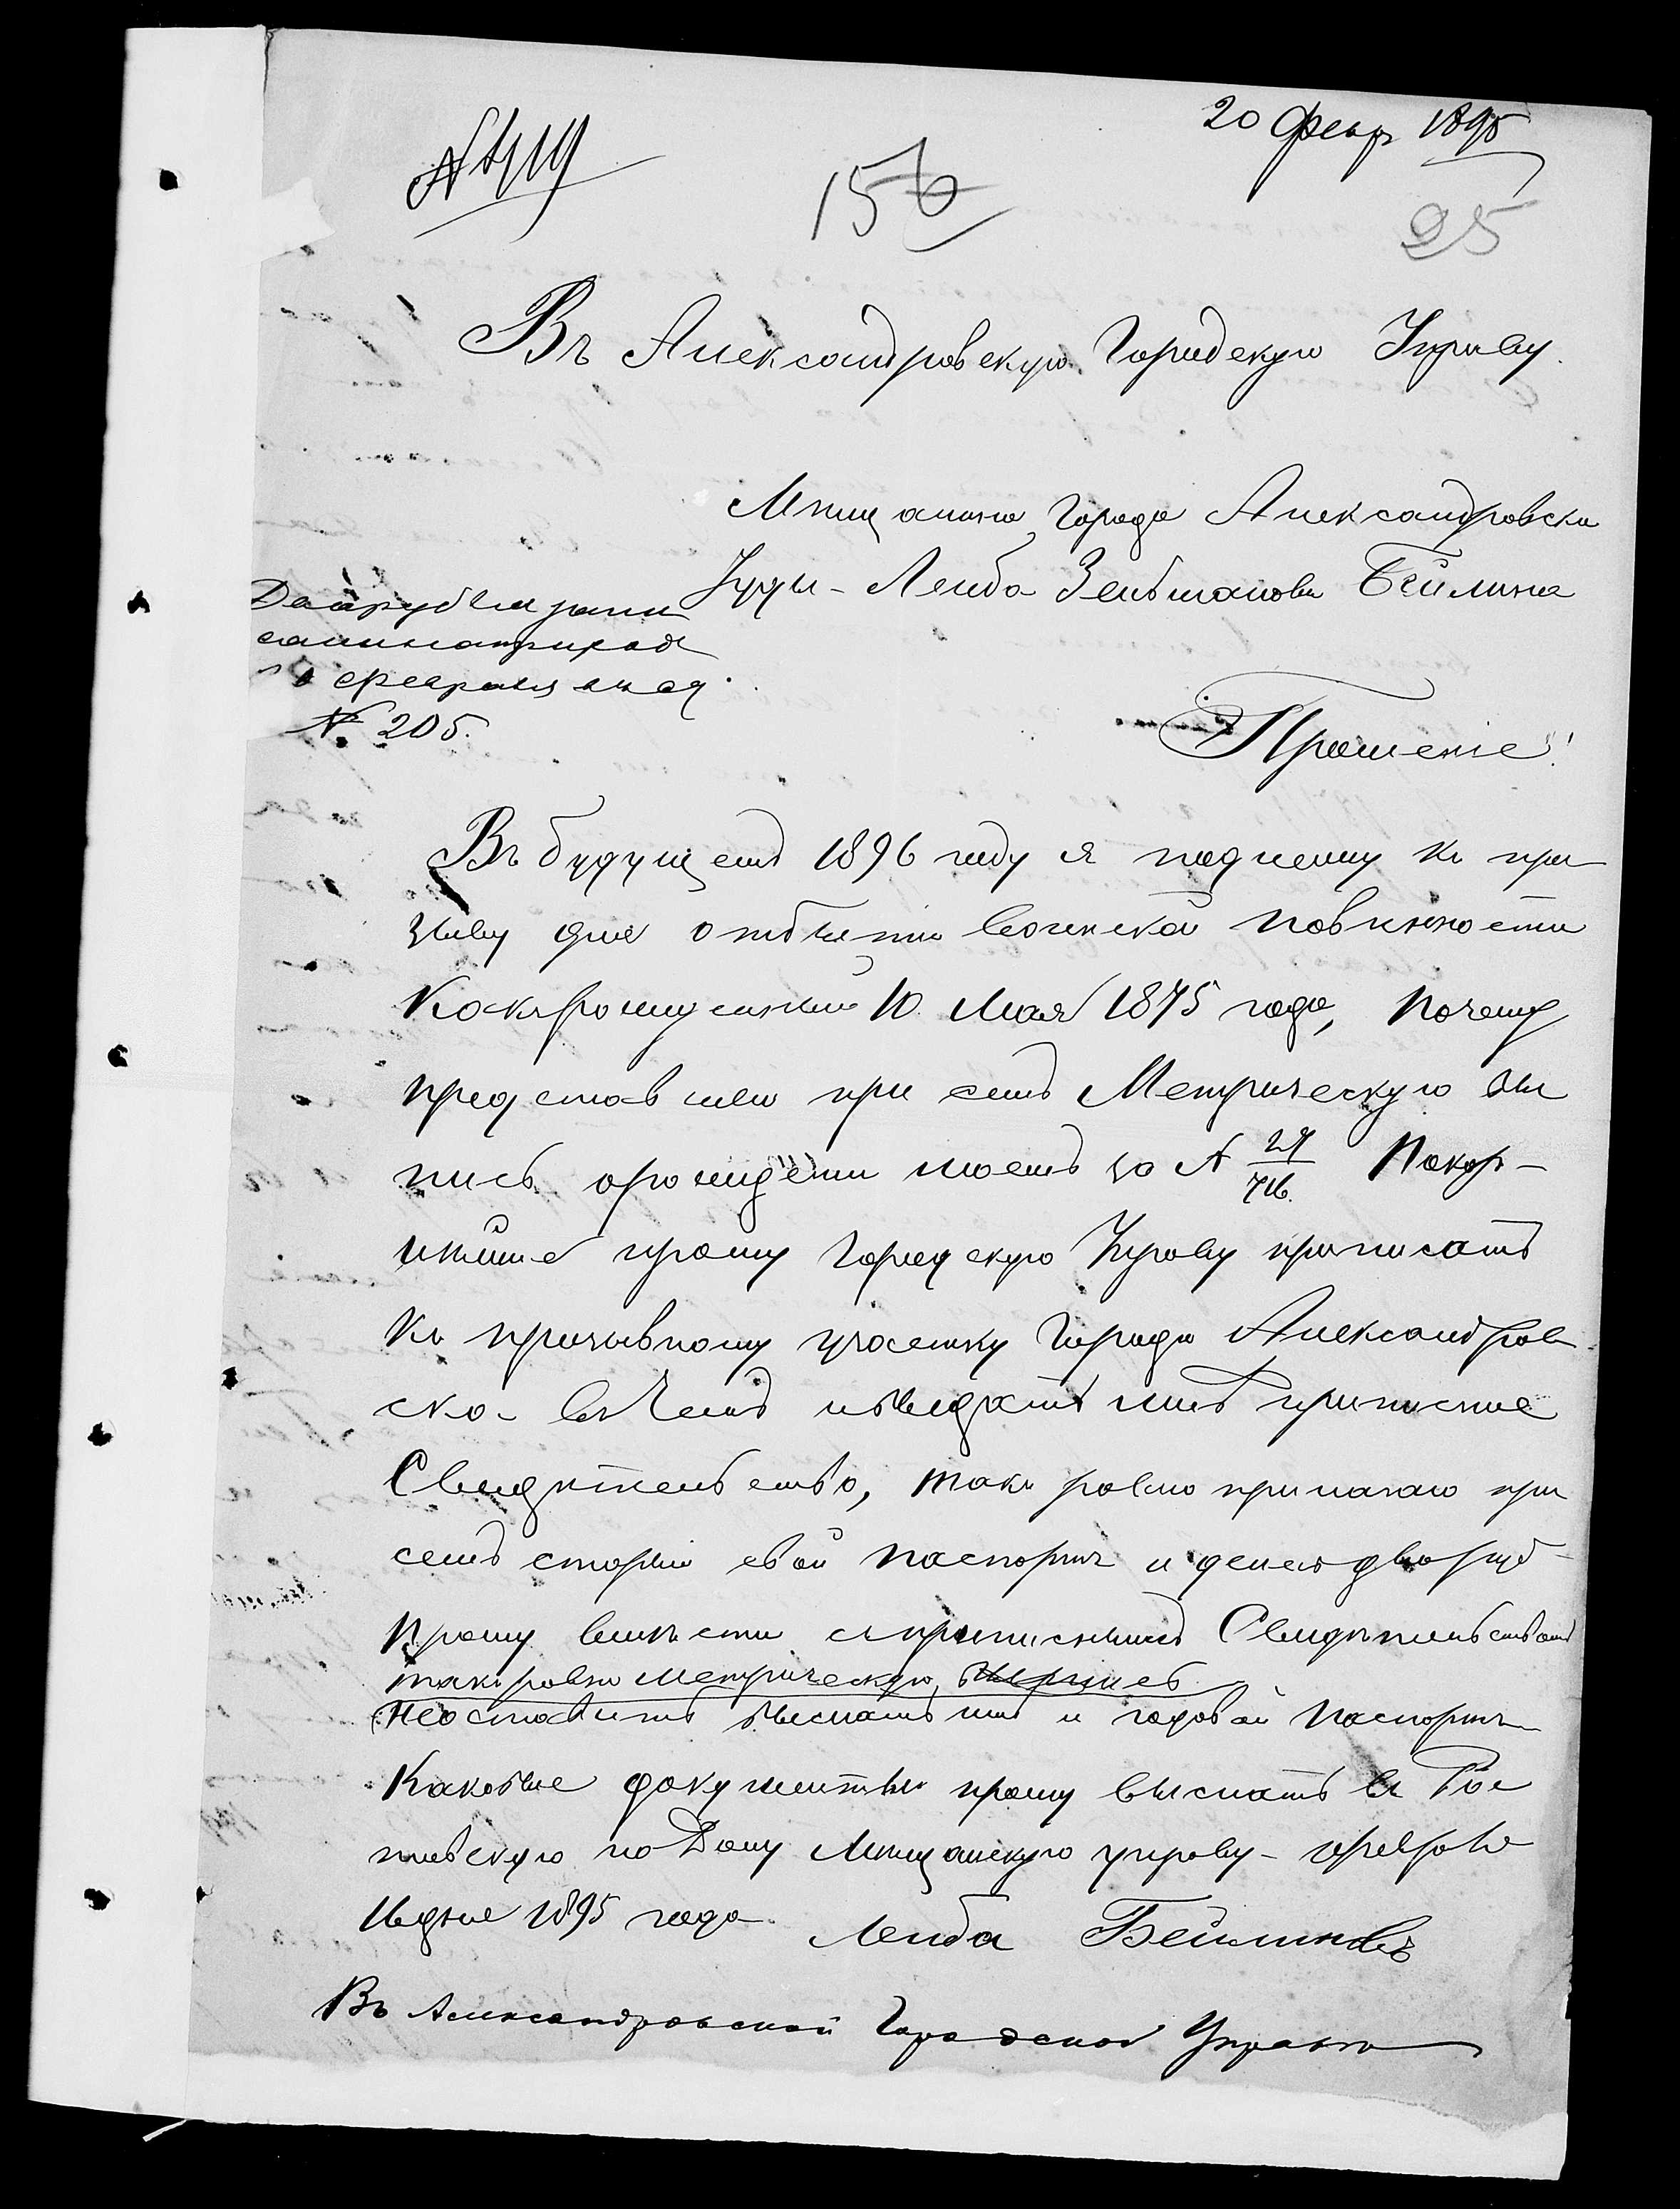 20 Февр 1895
156
25
Въ Александровскую Городскую Управу.
Мѣщанина города Александровска
Іуды-Лейба Зельмановъ Бейлина
Два рубля запи
саны на приходъ
февраля
№ 205.
Прошеніе!
Въ будущемъ 1896 году я подлежу къ при
зыву для отбытія воинской повинности
Какъ рожденный 10 Мая 1875 года, почему
представляю при семъ Метрическую вы
пись о рожденіи моемъ за № 27/76. Покор-
нѣйше прошу Городскую Управу приписать
къ призывному участку города Александров
ска въ чемъ и выдать мнѣ приписное
Свидѣтельство, такъ равно прилагаю при
семъ старый свой паспортъ и денегъ два руб
прошу вмѣстѣ съ приписнымъ Свидѣтельствомъ
такъ равно метрическую,
неоставить выслать мнѣ и годовой паспортъ
Каковые документы прошу выслать въ Рос
товскую по Дону Мѣщанскую управу - февраля
дня 1895 года.
Лейба Бейлинъ
Въ Александровской Городской Управѣ